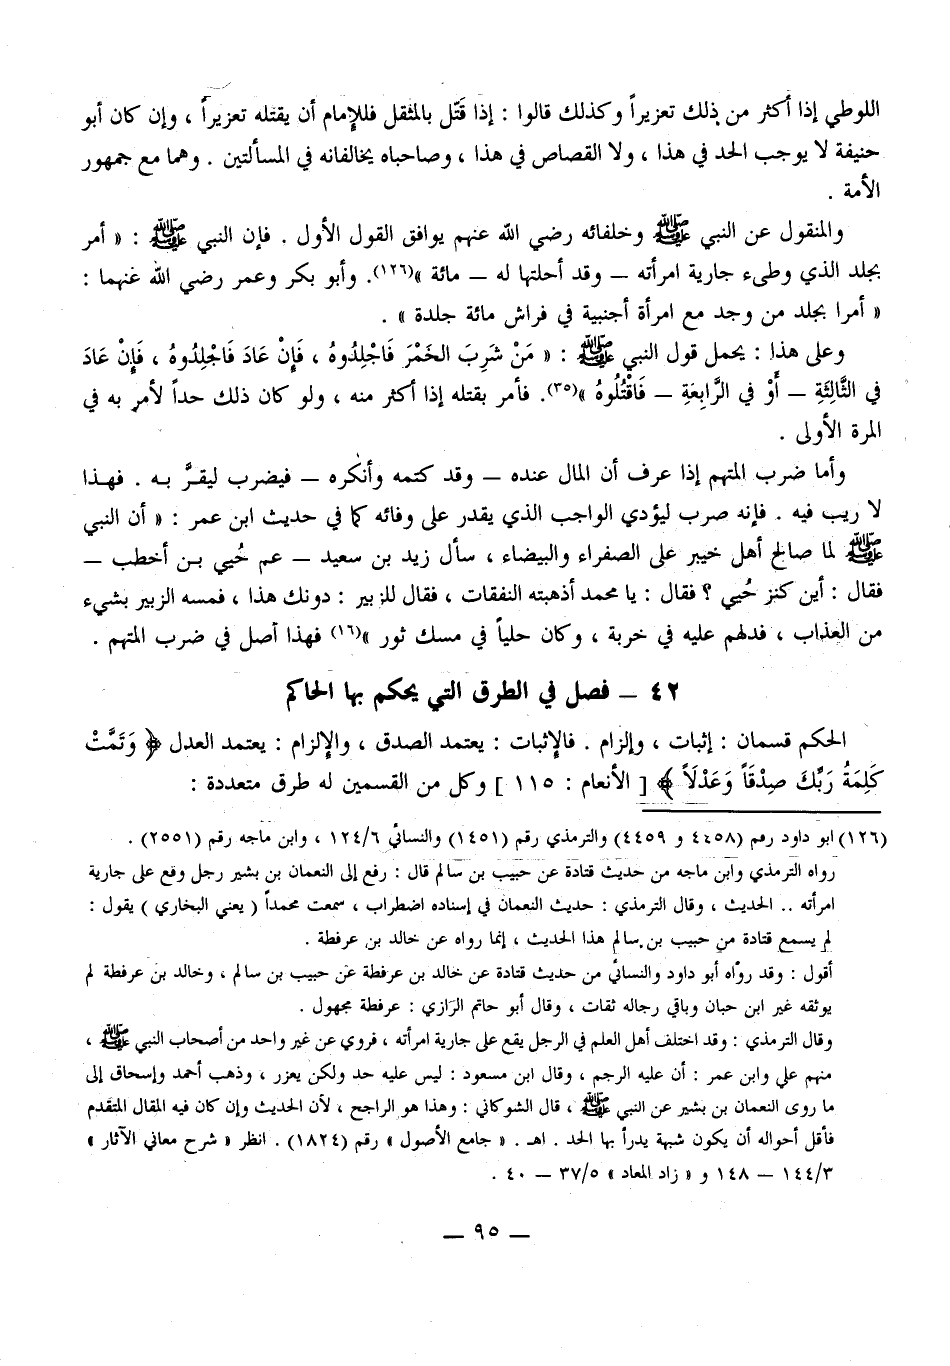 اللوطي إذا أكثر من ذلك تعزيراً وكذلك قالوا : إذا قَتَل بالمثقل فللإمام أن يقتله تعزيراً ، وإن كان أبو
حنيفة لا يوجب الحد في هذا ، ولا القصاص في هذا ، وصاحباه يخالفانه في المسألتين . وهما مع جمهور
الأمة .
والمنقول عن النبي ﷺ وخلفائه رضي الله عنهم يوافق القول الأول . فإن النبي ﷺ : « أمر
بجلد الذي وطىء جارية امرأته – وقد أحلتها له – مائة »(١٢٦). وأبو بكر وعمر رضي الله عنهما :
« أمرا بجلد من وجد مع امرأة أجنبية في فراش مائة جلدة » .
وعلى هذا : يحمل قول النبي ﷺ : « مَنْ شَرِبَ الخَمْرَ فَاجْلِدُوهُ ، فَإِنْ عَادَ فَاجْلِدُوهُ ، فَإِنْ عَادَ
في الثَّالِثَةِ – أَوْ في الرَّابِعَةِ – فَاقْتُلُوهُ »(٣٥). فأمر بقتله إذا أكثر منه ، ولو كان ذلك حداً لأمر به في
المرة الأولى .
وأما ضرب المتهم إذا عرف أن المال عنده – وقد كتمه وأنكره – فيضرب ليقرَّ به . فهذا
لا ريب فيه . فإنه ضرب ليؤدي الواجب الذي يقدر على وفائه كما في حديث ابن عمر : « أن النبي
ﷺ لما صالح أهل خيبر على الصفراء والبيضاء ، سأل زيد بن سعيد – عم حُيي بن أخطب –
فقال : أين كنز حُيي ؟ فقال : يا محمد أذهبته النفقات ، فقال للزبير : دونك هذا ، فمسه الزبير بشيء
من العذاب ، فدلهم عليه في خربة ، وكان حلياً في مسك ثور »(١٦) فهذا أصل في ضرب المتهم .
٤٢ – فصل في الطرق التي يحكم بها الحاكم
الحكم قسمان : إثبات ، وإلزام . فالإثبات : يعتمد الصدق ، والإلزام : يعتمد العدل ﴿ وَتَمَّتْ
كَلِمَةُ رَبِّكَ صِدْقَاً وَعَدْلَاً ﴾ [ الأنعام : ١١٥ ] وكل من القسمين له طرق متعددة :
(١٢٦) ابو داود رقم (٤٤٥٨ و ٤٤٥٩) والترمذي رقم (١٤٥١) والنسائي ١٢٤/٦ ، وابن ماجه رقم (٢٥٥١) .
رواه الترمذي وابن ماجه من حديث قتادة عن حبيب بن سالم قال : رفع إلى النعمان بن بشير رجل وقع على جارية
امرأته .. الحديث ، وقال الترمذي : حديث النعمان في إسناده اضطراب ، سمعت محمداً ( يعني البخاري ) يقول :
لم يسمع قتادة من حبيب بن سالم هذا الحديث ، إنما رواه عن خالد بن عرفطة .
أقول : وقد رواه أبو داود والنسائي من حديث قتادة عن خالد بن عرفطة عن حبيب بن سالم ، وخالد بن عرفطة لم
يوثقه غير ابن حبان وباقي رجاله ثقات ، وقال أبو حاتم الرازي : عرفطة مجهول .
وقال الترمذي : وقد اختلف أهل العلم في الرجل يقع على جارية امرأته ، فروي عن غير واحد من أصحاب النبي ﷺ ،
منهم علي وابن عمر : أن عليه الرجم ، وقال ابن مسعود : ليس عليه حد ولكن يعزر ، وذهب أحمد وإسحاق إلى
ما روى النعمان بن بشير عن النبي ﷺ ، قال الشوكاني : وهذا هو الراجح ، لأن الحديث وإن كان فيه المقال المتقدم
فأقل أحواله أن يكون شبهة يدرأ بها الحد . اهـ . « جامع الأصول » رقم (١٨٢٤) . انظر « شرح معاني الآثار »
١٤٤/٣ – ١٤٨ و « زاد المعاد » ٣٧/٥ – ٤٠ .
– ٩٥ –